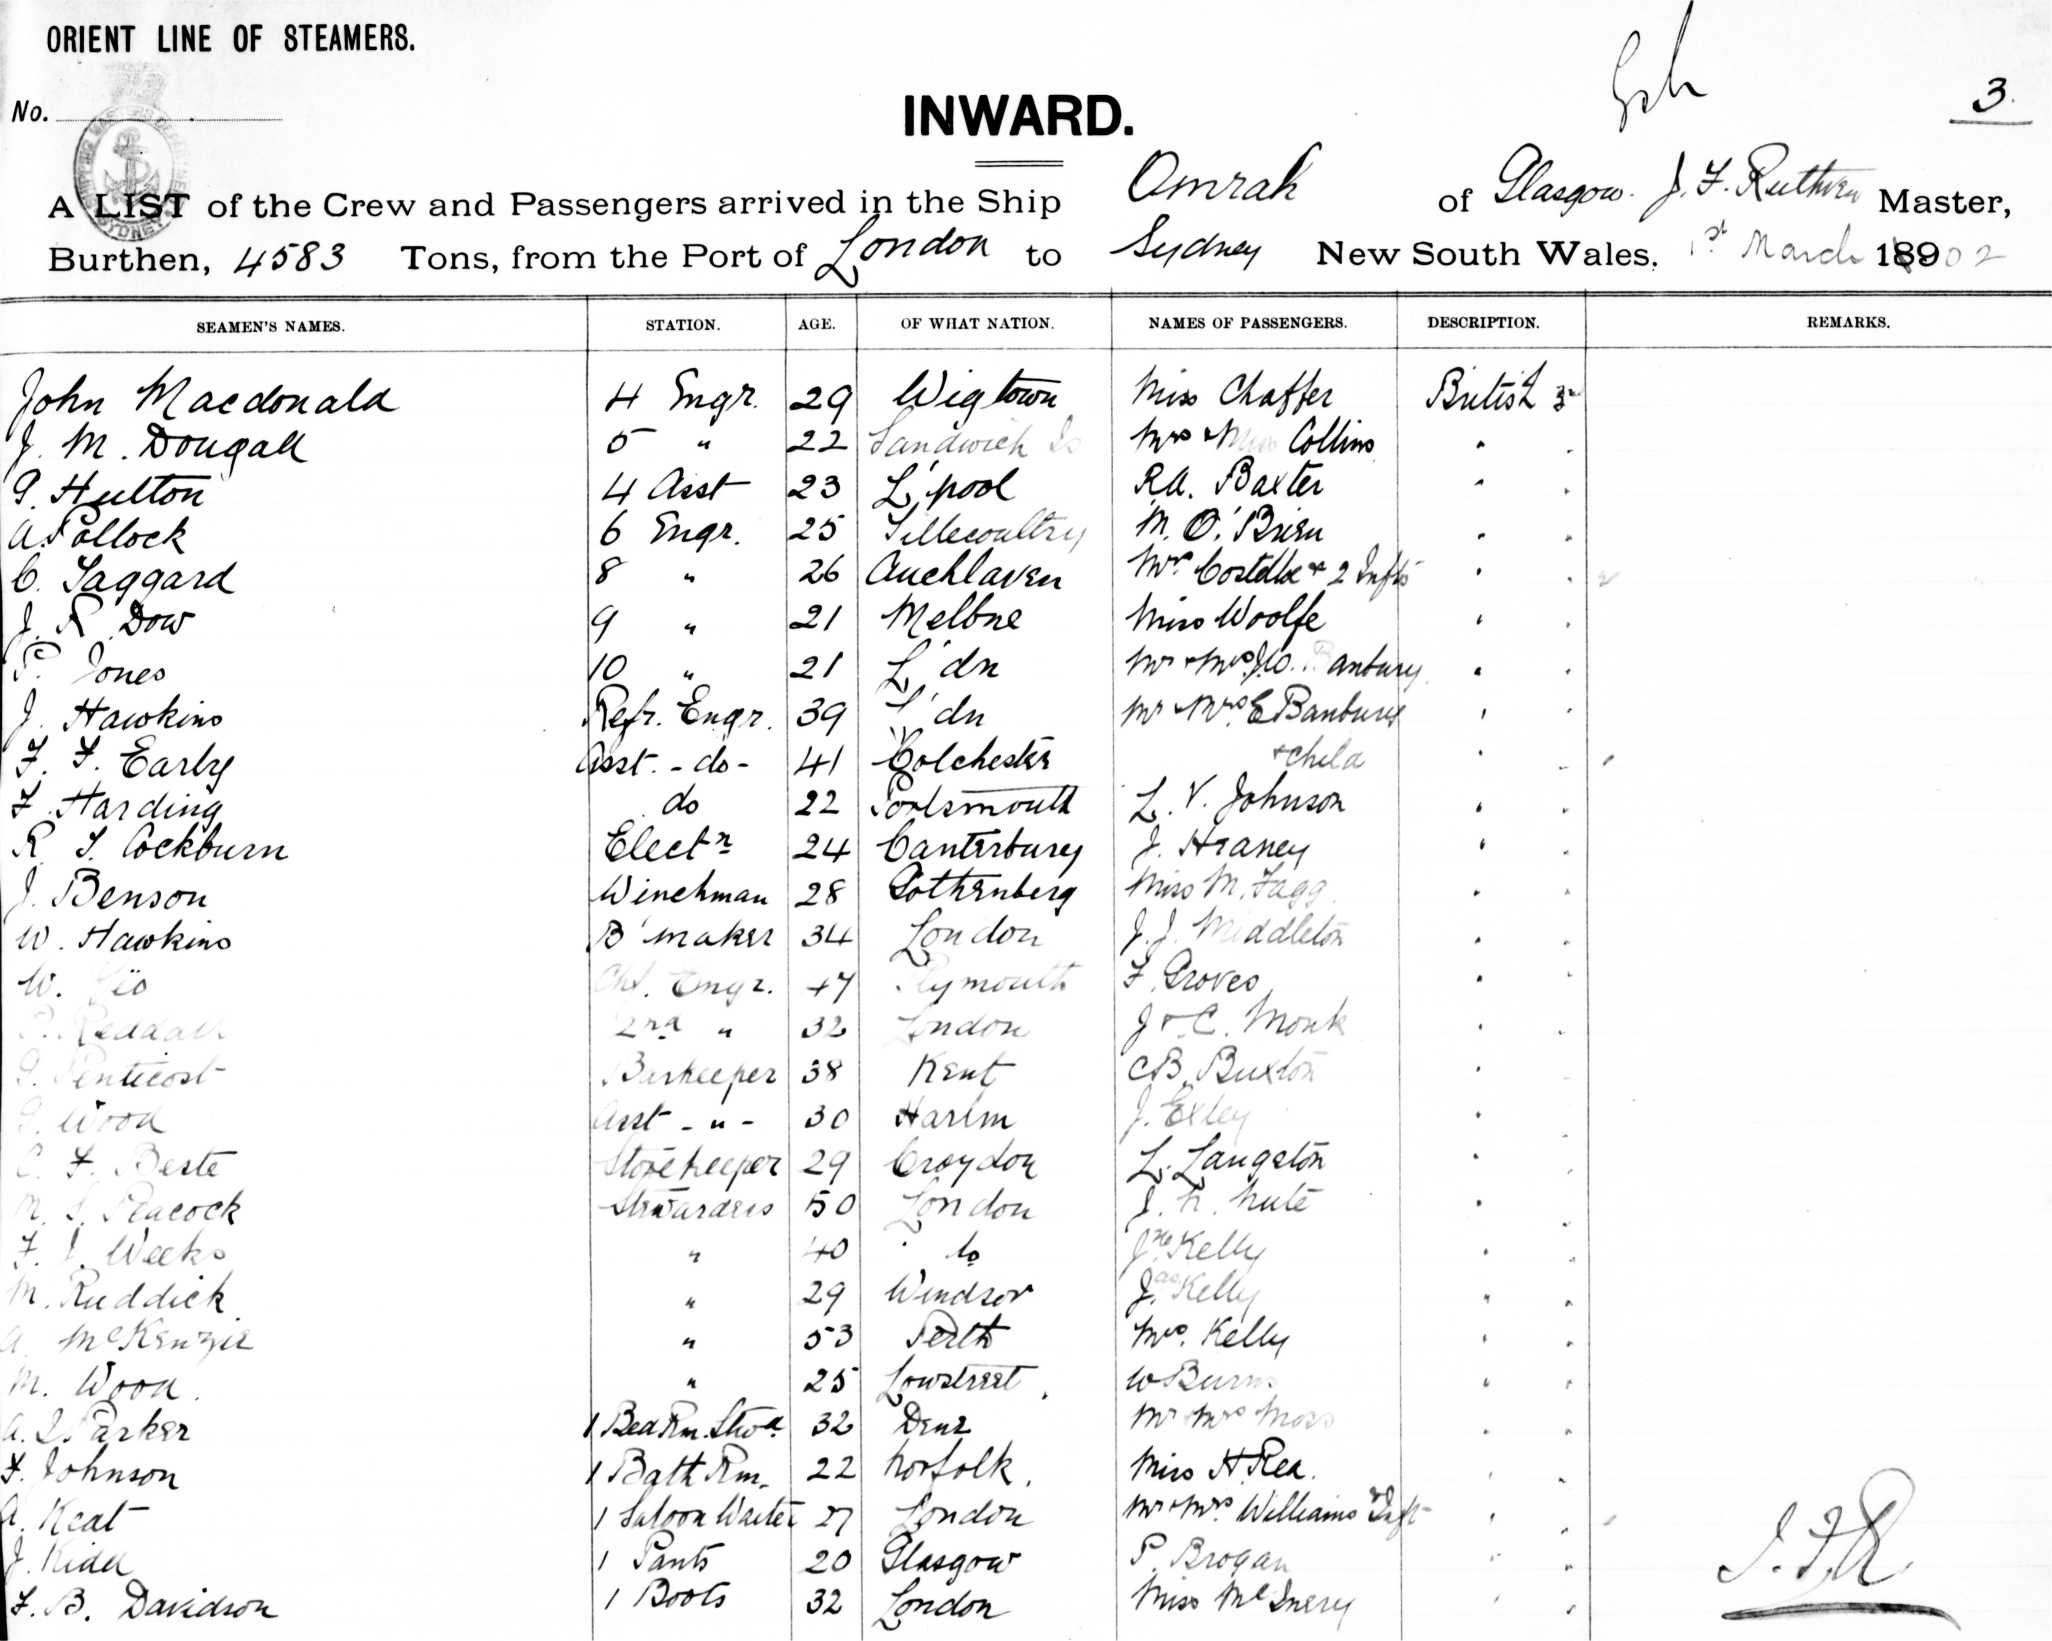 ORIENT LINE OF STEAMERS.
3.
No.
INWARD.
A LIST of the Crew and Passengers arrived in the Ship Omrah of Glasgow. J. F. Ruthven Master,
Burthen, 4583 Tons, from the Port of London to Sydney New South Wales. 1st March 1902
SEAMEN'S NAMES. STATION. AGE. OF WHAT NATION. NAMES OF PASSENGERS. DESCRIPTION. REMARKS.
John Macdonald 4 Engr. 29 Wigtown Miss Chaffer British 3
J. M. Dougall 5 " 22 Sandwich Is Mrs & Miss Collins " "
G. Hulton 4 Asst 23 L'pool R.A. Baxter " "
A. Pollock 6 Engr. 25 Tillecoultry M. O'Brien " "
C. Taggard 8 " 26 Auchlaven Mrs Costelloe & 2 Infts " "
J. R. Dow 9 " 21 Melbne Miss Woolfe " "
P. Jones 10 " 21 L'dn Mr & Mrs Banbury " "
J. Hawkins Refr. Engr. 39 L'dn Mr & Mrs E Banbury " "
F. F. Earby Asst. - do - 41 Colchester & child " "
F. Harding do 22 Portsmouth L. V. Johnson " "
R. S. Cockburn Electn 24 Canterbury J. Heaney " "
J. Benson Winchman 28 Gothenberg Miss M. Fagg " "
W. Hawkins B'maker 34 London J. J. Middleton " "
W. Chf. Engr. 47 Plymouth F. Groves " "
Reddall 2nd " 32 London J & C. Monk " "
G. Penticost Barkeeper 38 Kent C B. Buxton " "
G. Wood Asst - " - 30 Harlem J. Exley " "
C. F. Beste Storekeeper 29 Croydon L. Langston " "
M. S. Peacock Stewardess 50 London J. N. Nute " "
F. J. Weeks " 40 do Jno Kelly " "
M. Ruddick " 29 Windsor Jas Kelly " "
A. McKenzie " 53 Perth Mrs. Kelly " "
M. Wood. " 25 Lowstreet. W Burns " "
A. J. Parker 1 Bed Rm. Stwd. 32 Mr & Mrs Moss " "
F. Johnson 1 Bath Rm. 22 Norfolk. Miss H. Rea. " "
A. Keat 1 Saloon Waiter 27 London Mr & Mrs. Williams & Inft " "
J. Kidd 1 Pants 20 Glasgow P. Brogan " "
F. B. Davidson 1 Boots 32 London Miss McInery " "
J. F. R.